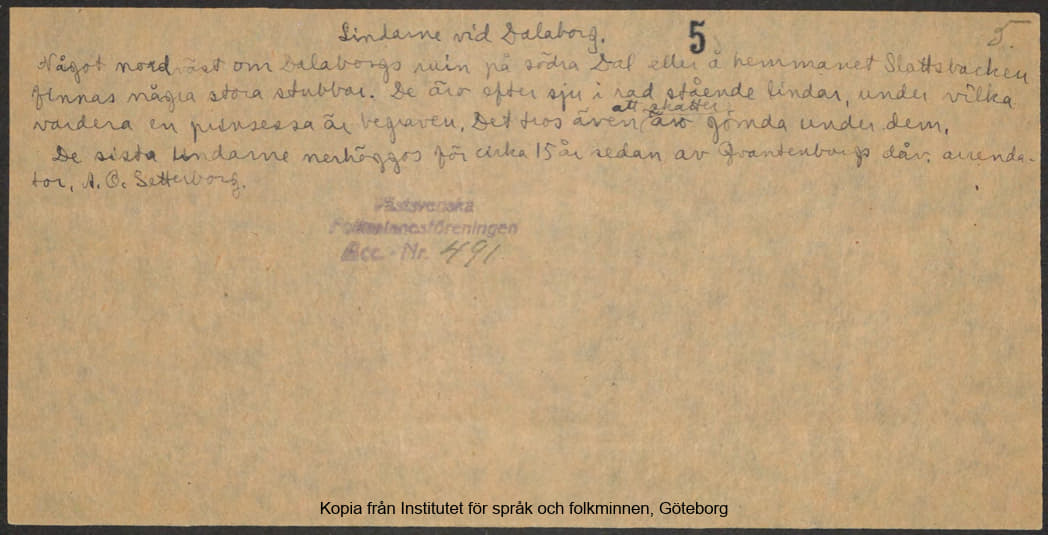 Lindarne vid Dalaborg. 5 5.
Något nordväst om Dalaborgs ruin på södra Dal eller å hemmanet Slattsbacken
finnas några stora stubbar. De äro efter sju i rad stående lindar, under vilka
vardera en prinsessa är begraven. Det tros även att skatter äro gömda under dem.
De sista lindarne nerhöggos för cirka 15 år sedan av Qvantenborgs dåv. arrenda-
tor, A. O. Setterborg.
Västsvenska
Folkminnesföreningen
Acc. - Nr. 491
Kopia från Institutet för språk och folkminnen, Göteborg